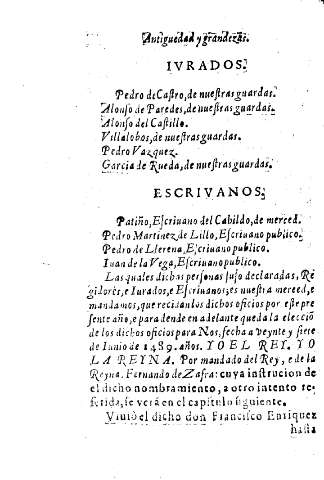 Antiguedad y grandezas.
IVRADOS.
Pedro de Castro, de nuestras guardas.
Alonso de Paredes, de nuestras guardas.
Alonso del Castillo.
Villalobos, de nuestras guardas.
Pedro Vazquez.
Garcia de Rueda, de nuestras guardas.
ESCRIVANOS.
Patiño, Escriuano del Cabildo, de merced.
Pedro Martinez de Lillo, Escriuano publico.
Pedro de Llerena, Escriuano publico.
Iuan de la Vega, Escriuano publico.
Las quales dichas personas suso declaradas, Re
gidores, e Iurados, e Escriuanos, es nuestra merced, e
mandamos, que reciban los dichos oficios por este pre
sente año, e para dende en adelante queda la elecciõ
de los dichos oficios para Nos, fecha a veynte y siete
de Iunio de 1489. años. YO EL REY. YO
LA REYNA. Por mandado del Rey, e de la
Reyna. Fernando de Zafra: cuya instrucion de
el dicho nombramiento, a otro intento re-
ferida, se verà en el capitulo siguiente.
Viuiò el dicho don Francisco Enriquez
hasta